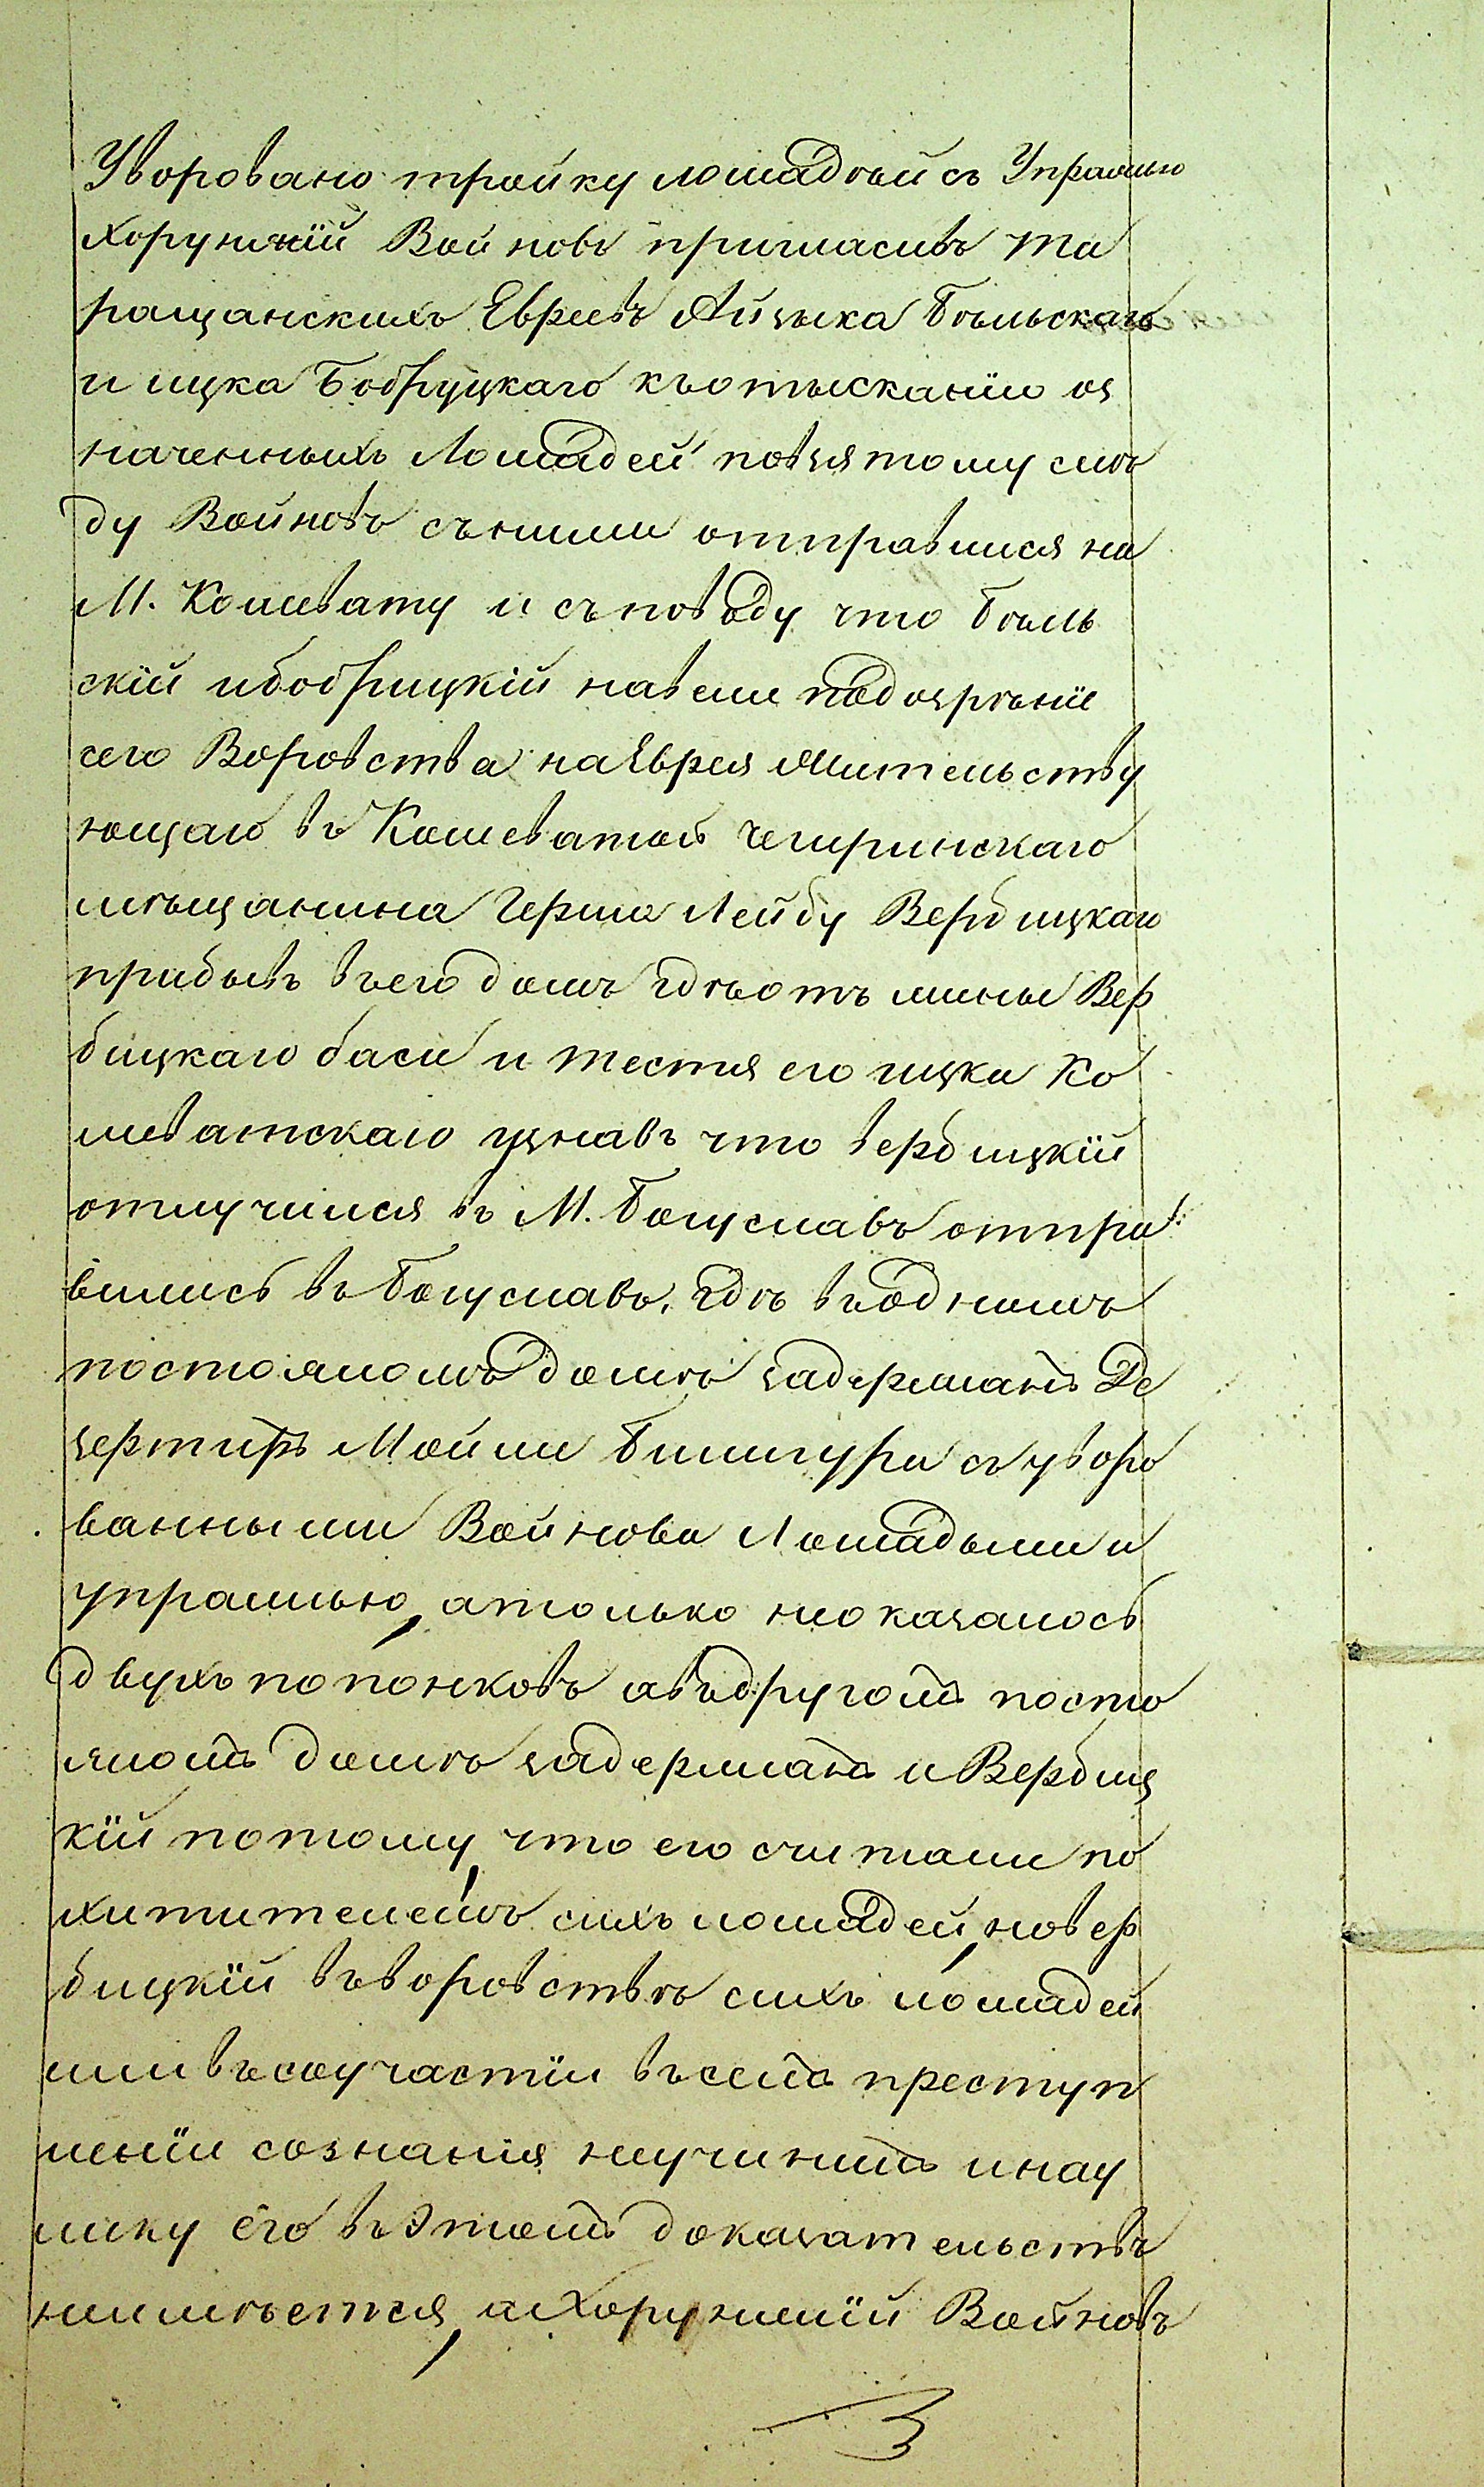 Уворовано тройку лошадѣй съ Упражью
хорунжій Войновъ пригласивъ та
ращанскихъ Евреевъ Айзыка Бѣльскаго
и ицка Бобруцкаго къ отысканію оз
наченныхъ Лошадей повзятому слѣ
ду Войновъ съ ними отправился на
М. Кошевату и съ поводу что Бѣль
скій и бобрицкій навели подозрѣніе
сего Воровства на Еврея Жительству
ющаго въ Кошеватой чегиринскаго
мѣщанина Герша Лейбу Вербицкаго
прибывъ въ его домъ гдѣ отъ жины Вер
бицкаго баси и тестя его ицки Ко
шеватскаго узнавъ что вербицкій
отлучился въ М. Богуславъ отпра
вились въ Богуславъ, гдѣ въ одномъ
постояломъ домѣ задержанъ Де
зертиръ Мойши Билигура съ уворо
ванными Войнова Лошадьми и
упражью, а только неоказалось
двухъ попонковъ авъ другомъ посто
яломъ домѣ задержанъ и Вербиц
кій потому, что его считали по
хитителемъ сихъ лошадей, но вер
бицкій въ воровствѣ сихъ лошадей
или въ соучастіи въ семъ преступ
леніи сознанія неучинилъ и нау
лику его въ Этомъ доказательствъ
неимѣется, а Хорунжій Войновъ